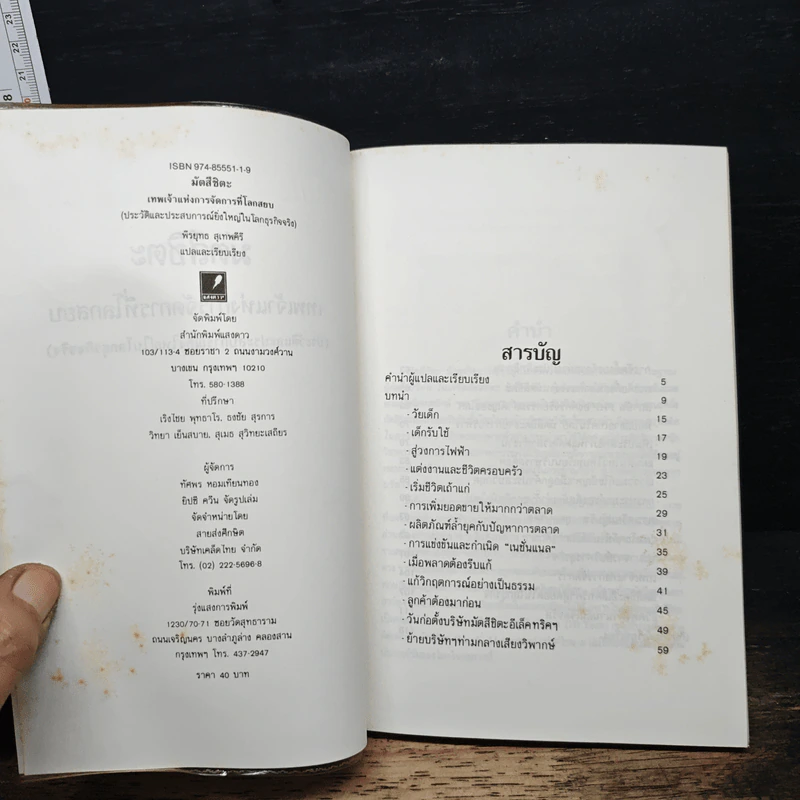 ISBN 974-85551-1-9
มัตสึชิตะ
เทพเจ้าแห่งการจัดการที่โลกสยบ
(ประวัติและประสบการณ์ยิ่งใหญ่ในโลกธุรกิจจริง)
พิรยุทธ สุเทพคีรี
แปลและเรียบเรียง
แสงดาว
จัดพิมพ์โดย
สำนักพิมพ์แสงดาว
103/113-4 ซอยราชา 2 ถนนงามวงศ์วาน
บางเขน กรุงเทพฯ 10210
โทร. 580-1388
ที่ปรึกษา
เริงไชย พุทธาโร. ธงชัย สุรการ
วิทยา เย็นสบาย. สุเมธ สุวิทยะเสถียร
ผู้จัดการ
ทัศพร หอมเทียนทอง
ยิปซี ควีน จัดรูปเล่ม
จัดจำหน่ายโดย
สายส่งศึกษิต
บริษัทเคล็ดไทย จำกัด
โทร. (02) 222-5696-8
พิมพ์ที่
รุ่งแสงการพิมพ์
1230/70-71 ซอยวัดสุทธาราม
ถนนเจริญนคร บางลำภูล่าง คลองสาน
กรุงเทพฯ โทร. 437-2947
ราคา 40 บาท
สารบัญ
คำนำผู้แปลและเรียบเรียง 5
บทนำ 9
- วัยเด็ก 15
- เด็กรับใช้ 17
- สู่วงการไฟฟ้า 19
- แต่งงานและชีวิตครอบครัว 23
- เริ่มชีวิตเถ้าแก่ 25
- การเพิ่มยอดขายให้มากกว่าตลาด 29
- ผลิตภัณฑ์ล้ำยุคกับปัญหาการตลาด 31
- การแข่งขันและกำเนิด "เนชั่นแนล" 35
- เมื่อพลาดต้องรีบแก้ 39
- แก้วิกฤตการณ์อย่างเป็นธรรม 41
- ลูกค้าต้องมาก่อน 45
- วันก่อตั้งบริษัทมัตสึชิตะอีเล็คทริคฯ 49
- ย้ายบริษัทฯท่ามกลางเสียงวิพากษ์ 59